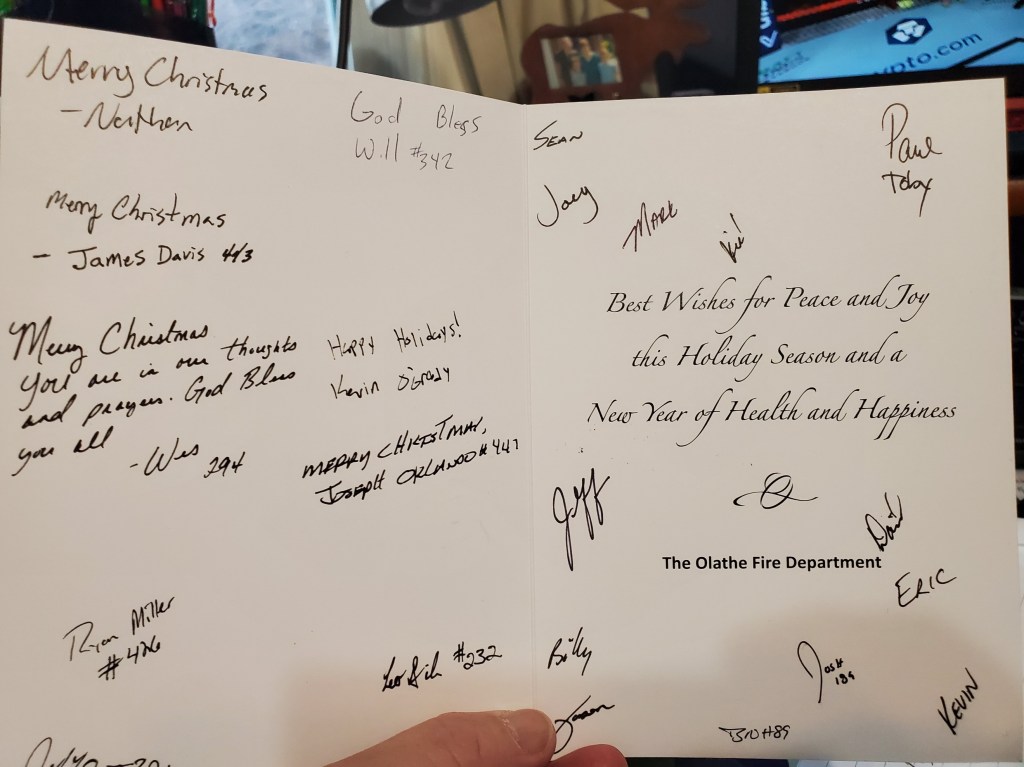 Merry Christmas
- Nathan
God Bless
Will #342
Merry Christmas
- James Davis 443
Merry Christmas
You are in our thoughts
and prayers. God Bless
you all
- Wes 294
Happy Holidays!
Kevin O'Grady
MERRY CHRISTMAS,
JOSEPH ORLANDO #447
Ryan Miller
#426
#232
SEAN
Joey
MARK
Paul
Toby
Best Wishes for Peace and Joy
this Holiday Season and a
New Year of Health and Happiness
The Olathe Fire Department
Jeff
David
ERIC
Billy
Jason
Josh
189
KEVIN
pto.com